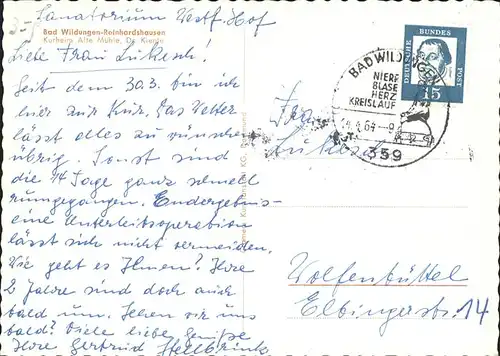 Sanatorium Westf. Hof
Bad Wildungen-Reinhardshausen
Kurheim Alte Mühle, Dr. Kienle
Liebe Frau Lukesch!
Seit dem 30.3. bin ich
hier zur Kur. Das Wetter
lässt alles zu wünschen
übrig. Sonst sind
die 14 Tage ganz schnell
rumgegangen. Endergebnis –
eine Unterleibsoperation
lässt sich nicht vermeiden.
Wie geht es Ihnen? Ihre
2 Jahre sind doch auch
bald um. Sehen wir uns
bald? Viele liebe Grüsse
Ihre Gertrud
DEUTSCHE BUNDESPOST
15
BAD WILDUNGEN
NIERE
BLASE
HERZ
KREISLAUF
4.64 - 9
359
Frau
Lukesch
Wolfenbüttel
Elbingerstr. 14